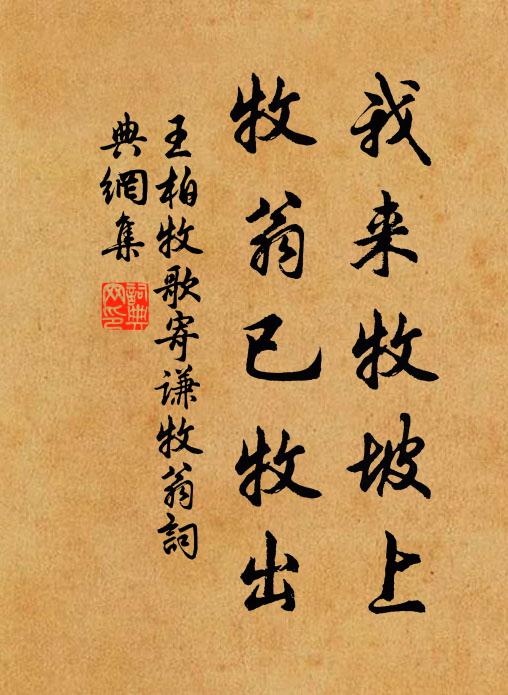 我来牧坡上
牧翁已牧出
王柏牧歌寄谦牧翁詞
典網集
詞典
网印